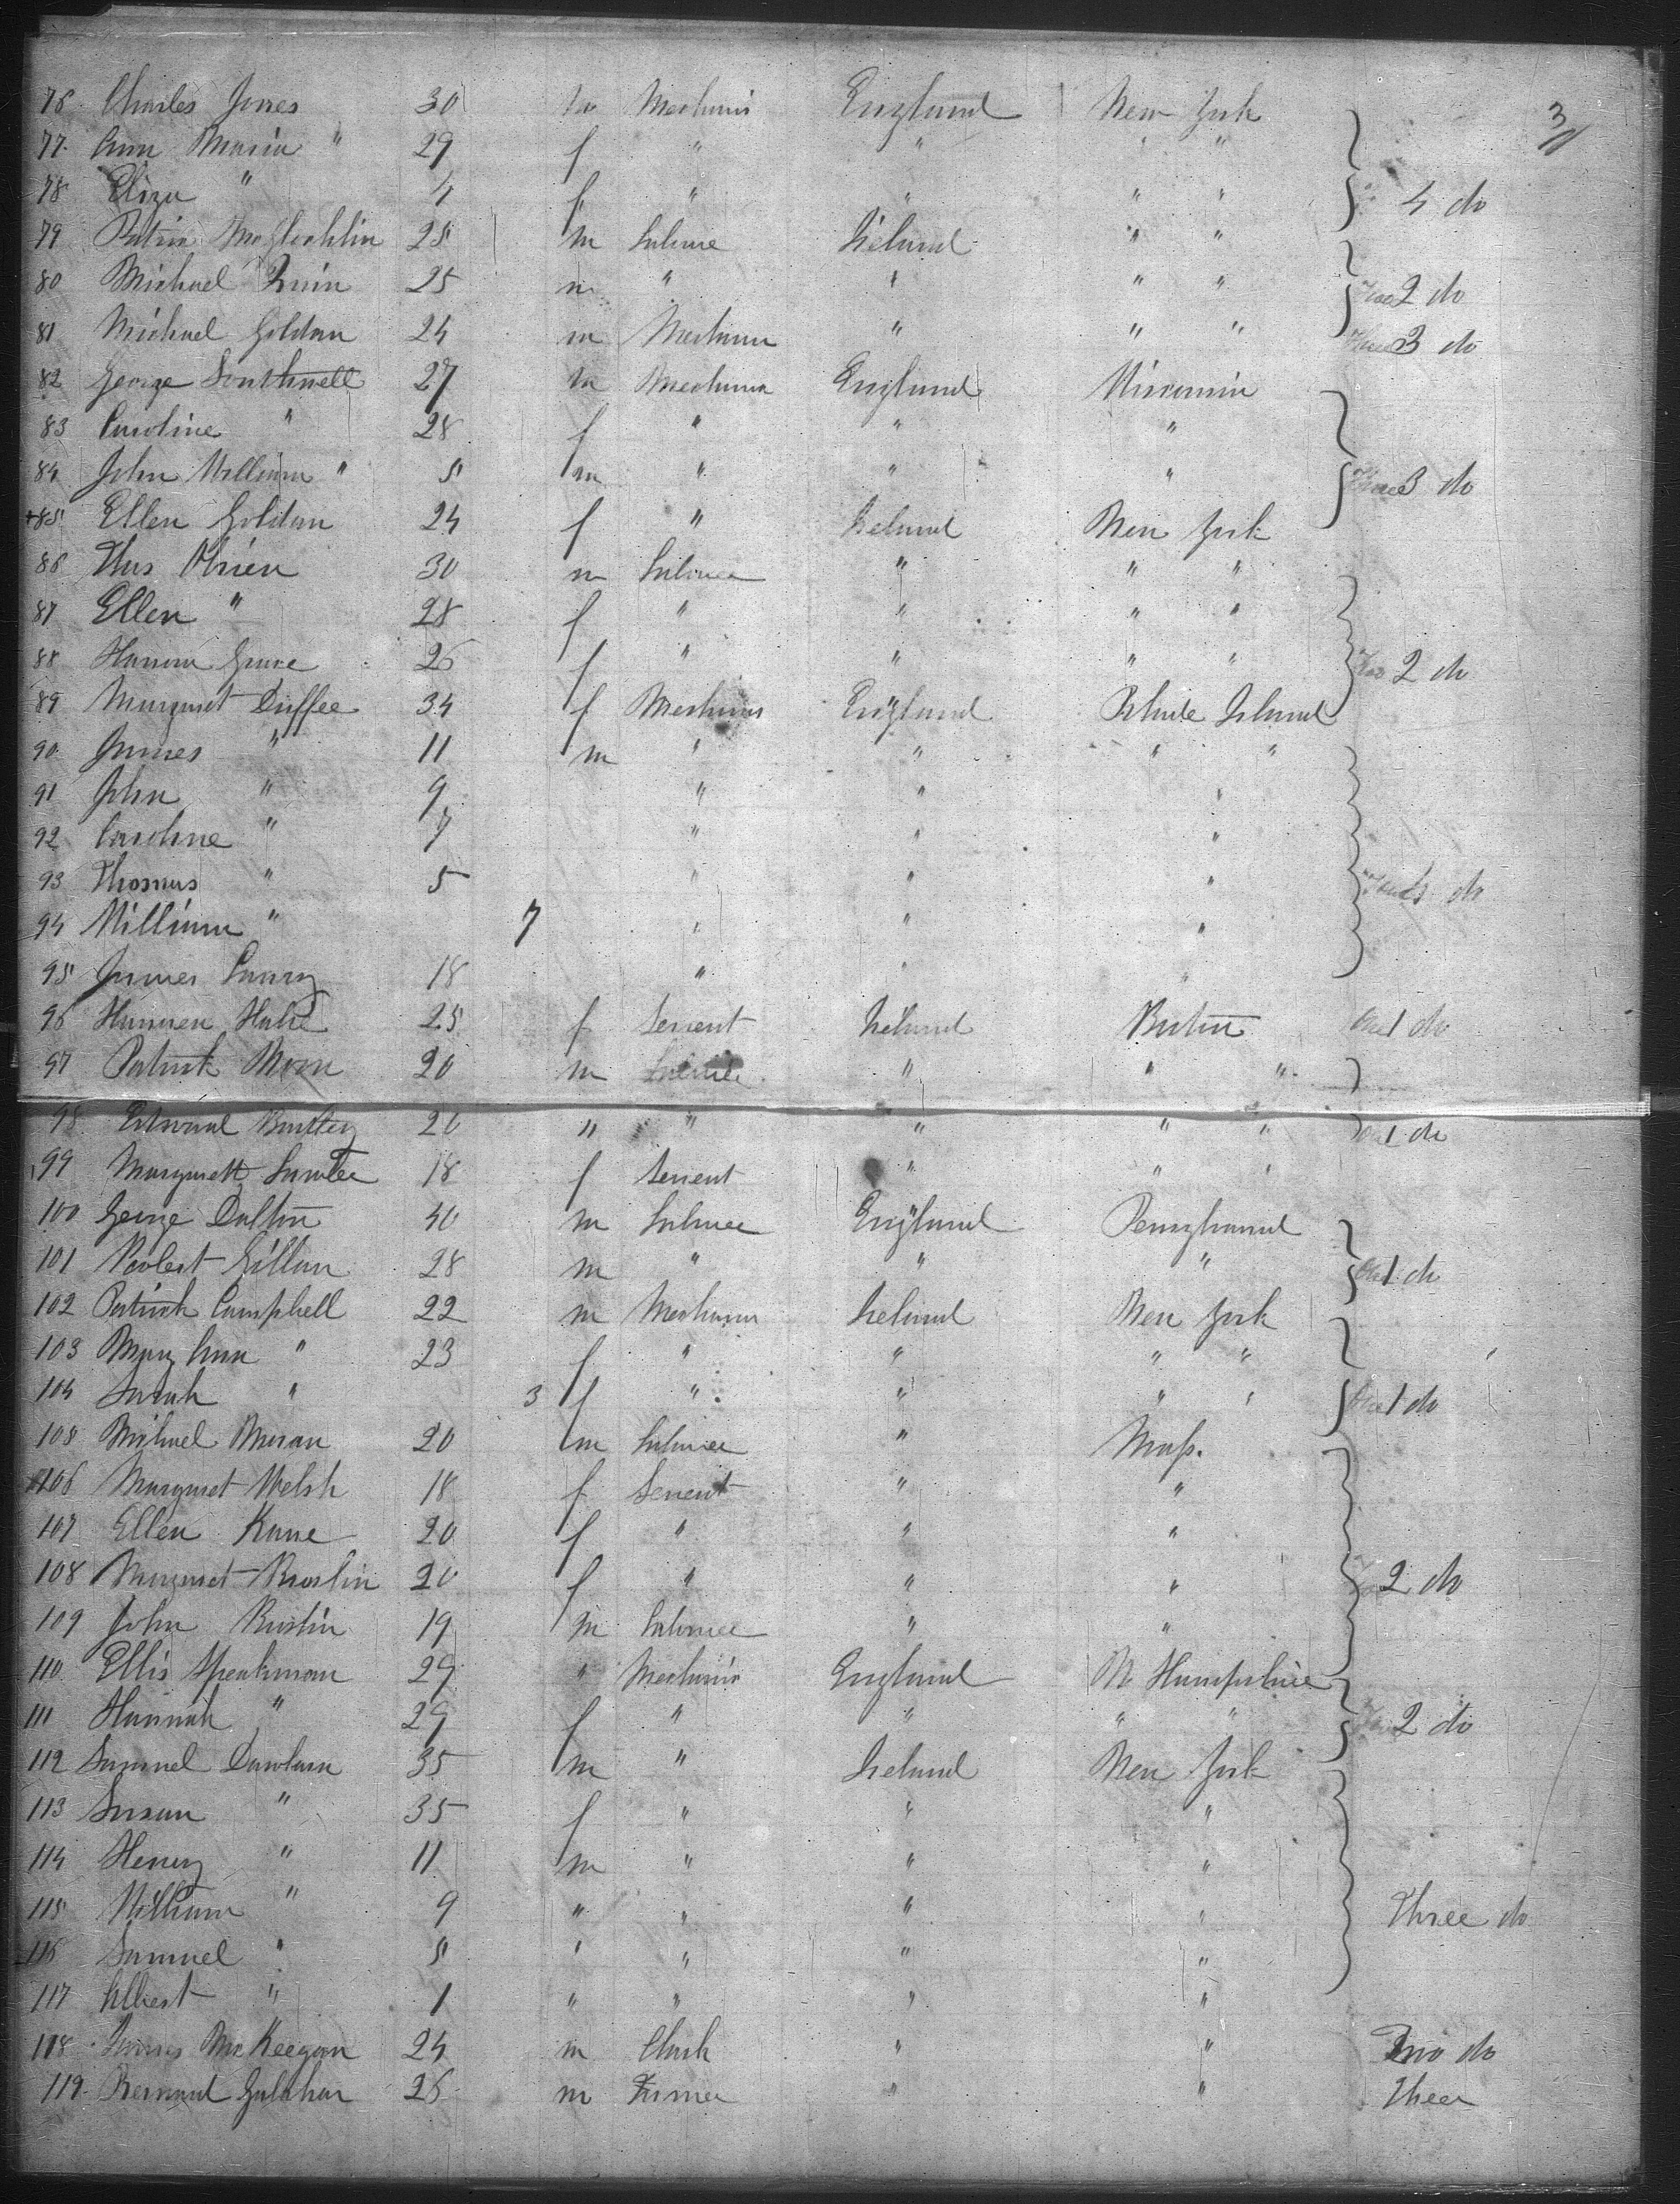 3
76 Charles Jones 30 m Mechanic England New York
77 Ann Maria " 29 f " " " "
78 Eliza " 4 f " " " " 4 do
79 25 m Laborer Ireland " "
80 Michael 25 m " " " " 2 do
81 Michael Goldan 24 m Mechanic " " " 3 do
82 George Southwell 27 m Mechanic England Wisconsin
83 Caroline " 28 f " " "
84 John William " 5 m " " " Three 3 do
85 Ellen Goldan 24 f " Ireland New York
86 Thos Obrien 30 m Laborer " " "
87 Ellen " 28 f " " " "
88 26 f " " " " Two 2 do
89 Margaret Duffee 34 f Mechanic England Rhode Island
90 James " 11 m " " " "
91 John " 9 " " "
92 Caroline " 7 " " "
93 Thomas " 5 " " " do
94 William " 7 " " "
95 James 18 " " "
96 25 f Servent Ireland Boston One 1 do
97 Patrick 20 m Laborer " " "
98 Edward 20 " " " " " 1 do
99 Margarett 18 f Servent " " "
100 George Dalton 40 m Laborer England
101 Robert Gillan 28 m " " " 1 do
102 Patrick Campbell 22 m Mechanic Ireland New York
103 Mary Ann " 23 f " " " "
104 Sarah " 3 f " " " " One 1 do
105 Michael Moran 20 m Laborer " Mass.
106 Margaret Welsh 18 f Servent " "
107 Ellen Kane 20 f " " "
108 Margaret 20 f " " " 2 do
109 John 19 m Laborer " "
110 Ellis Speakman 29 " Mechanic England N Hampshire
111 Hannah " 29 f " " " " 2 do
112 Samuel 35 m " Ireland New York
113 Susan " 35 f " " "
114 Henry " 11 m " " "
115 William " 9 " " " " Three do
116 Samuel " 5 " " " "
117 Albert " 1 " " " "
118 James McKeegan 24 m Clark " " Two do
119 Bernard 26 m Farmer " "